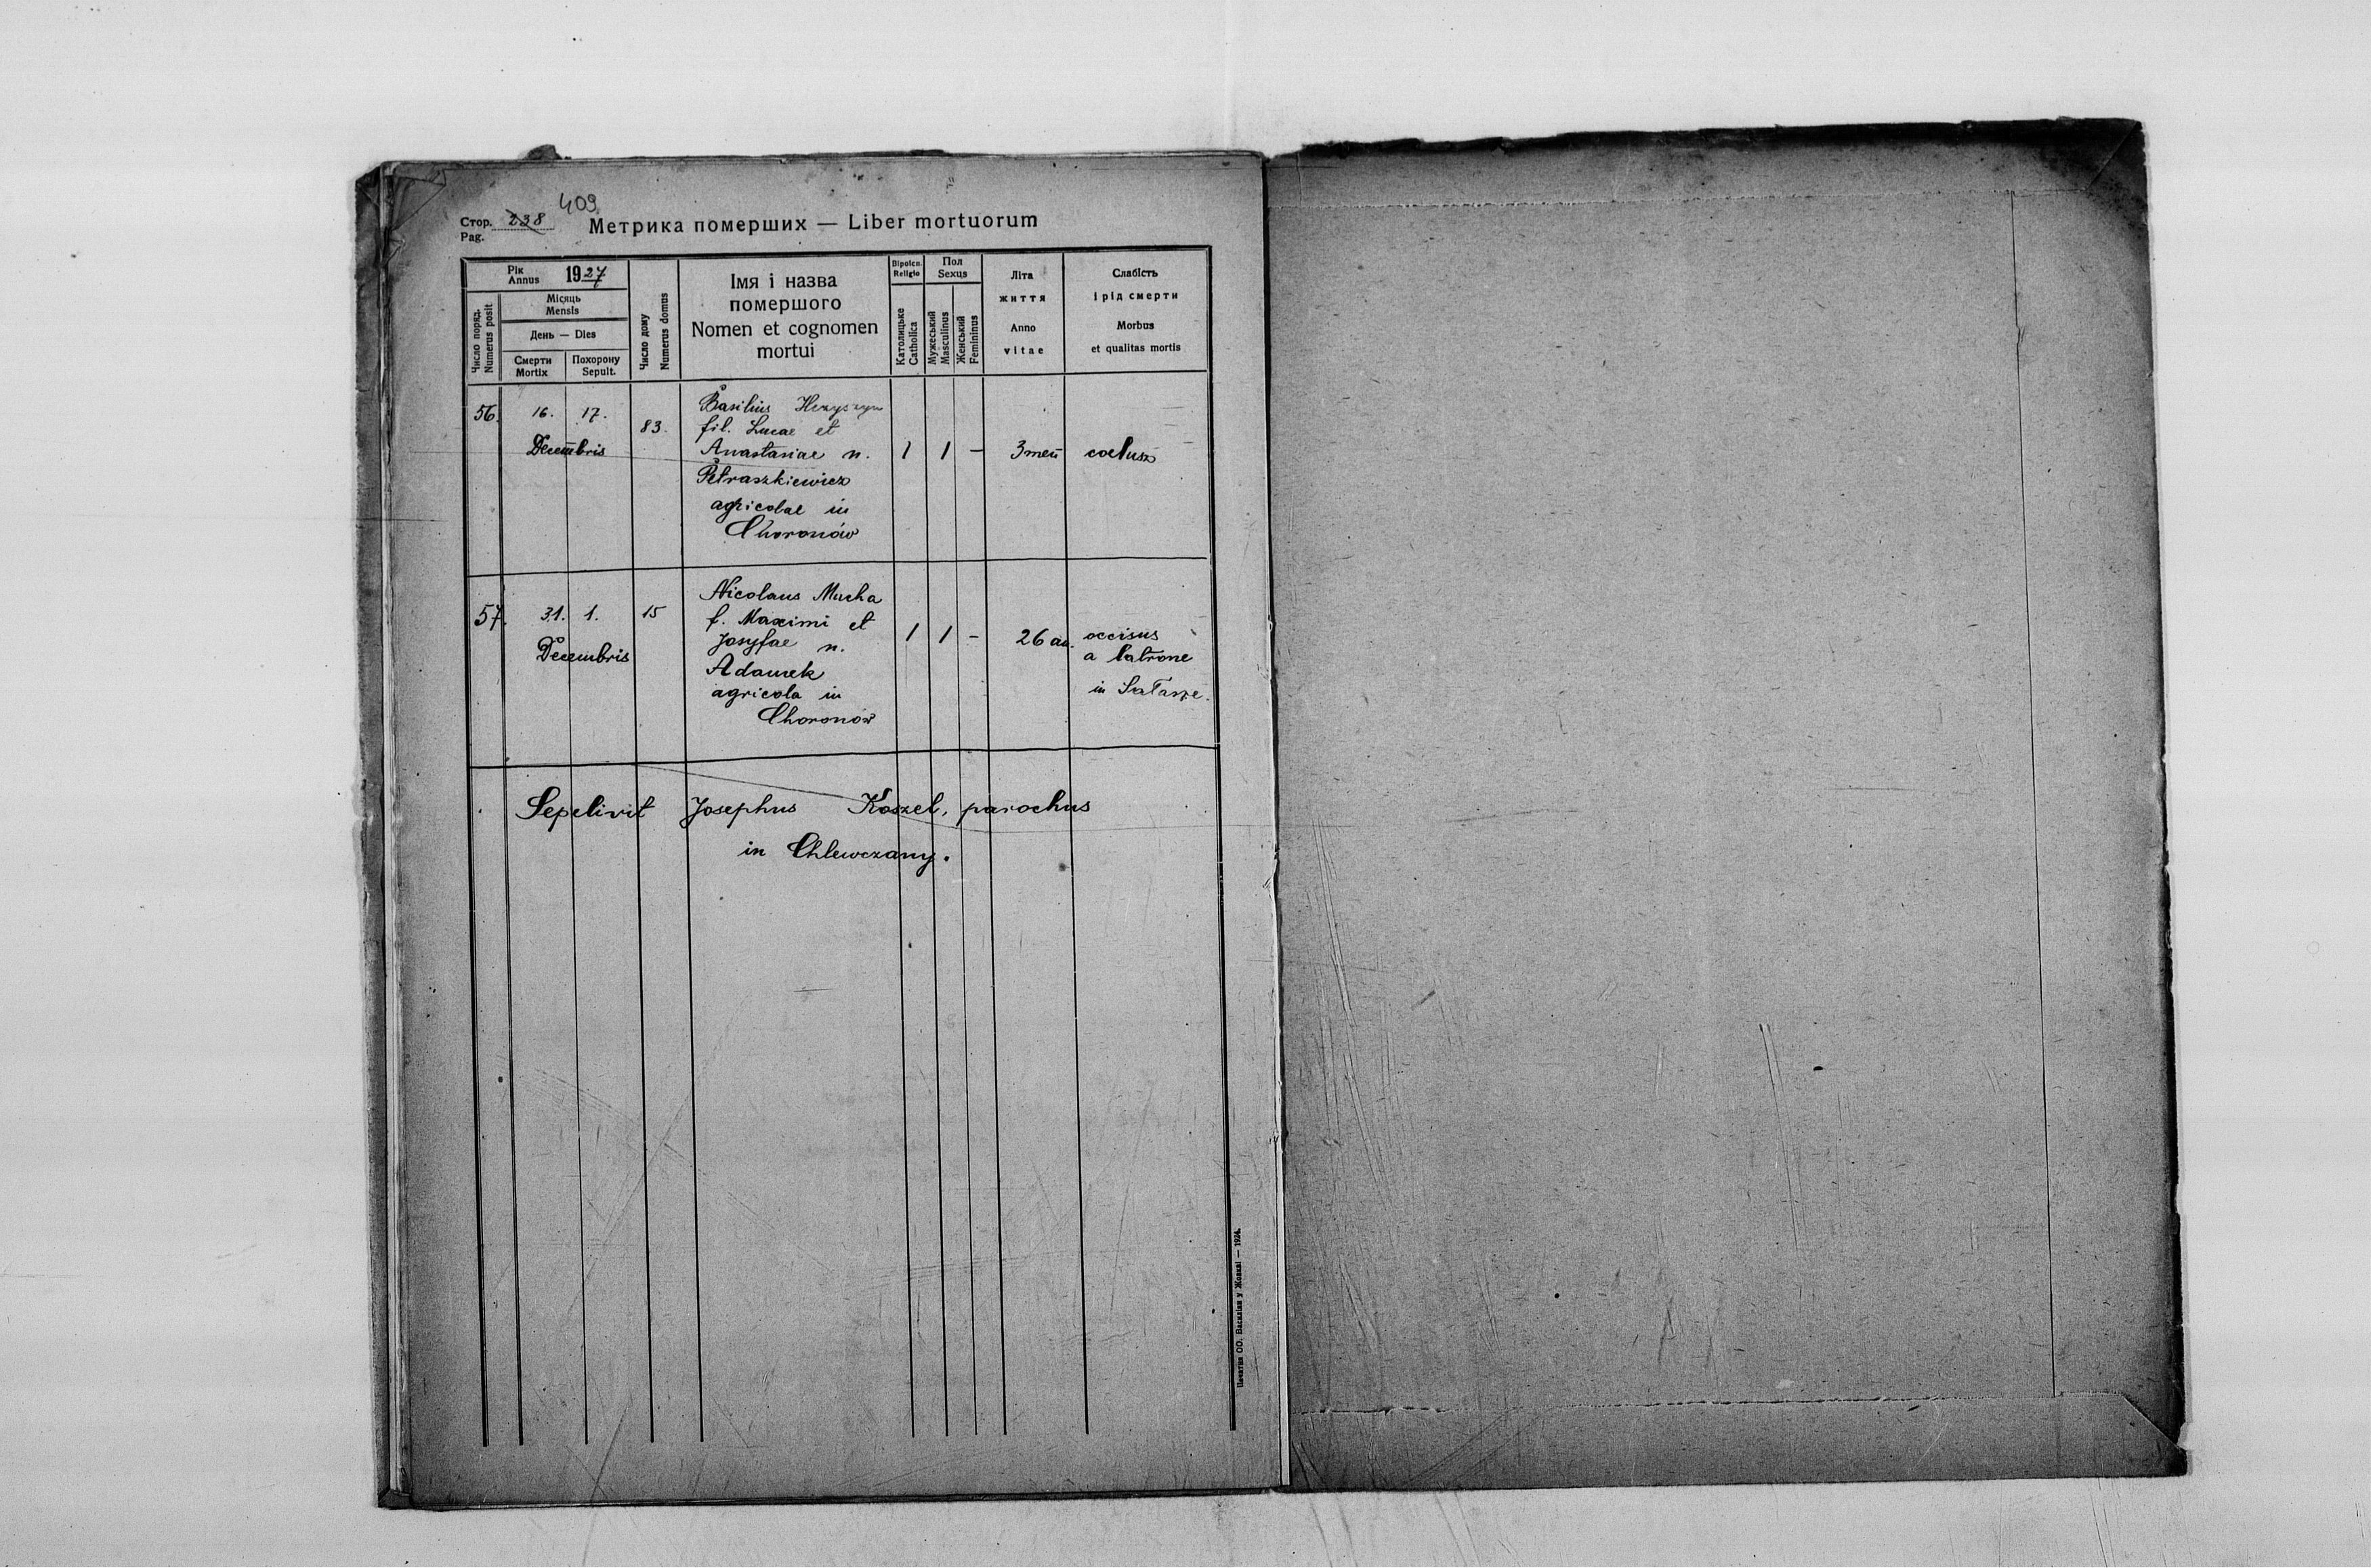 409
Стор. 238
Pag.
Метрика померших — Liber mortuorum
Рік
Annus 1927
Число поряд.
Numerus posit
Місяць
Mensis
День — Dies
Смерти
Mortix
Похорону
Sepult.
Число дому
Numerus domus
Імя і назва
помершого
Nomen et cognomen
mortui
Віроісп.
Religio
Католицьке
Catholica
Пол
Sexus
Мужеський
Masculinus
Женський
Femininus
Літа
життя
Anno
vitae
Слабість
і рід смерти
Morbus
et qualitas mortis
56. 16. 17.
Decembris
83.
Basilius
fil. Lucae et
Anastasiae n.
Petraszkiewicz
agricolae in
Choronów
1 1 –
3
57. 31. 1.
Decembris
15
Nicolaus Mucha
f. Maximi et
Josyfae n.
Adamek
agricola in
Choronów
1 1 –
26 an.
occisus
a latrone
in
Sepelivit Josephus Koszel, parochus
in Chlewczany.
Печатня ОО. Василіян у Жовкві — 1924.